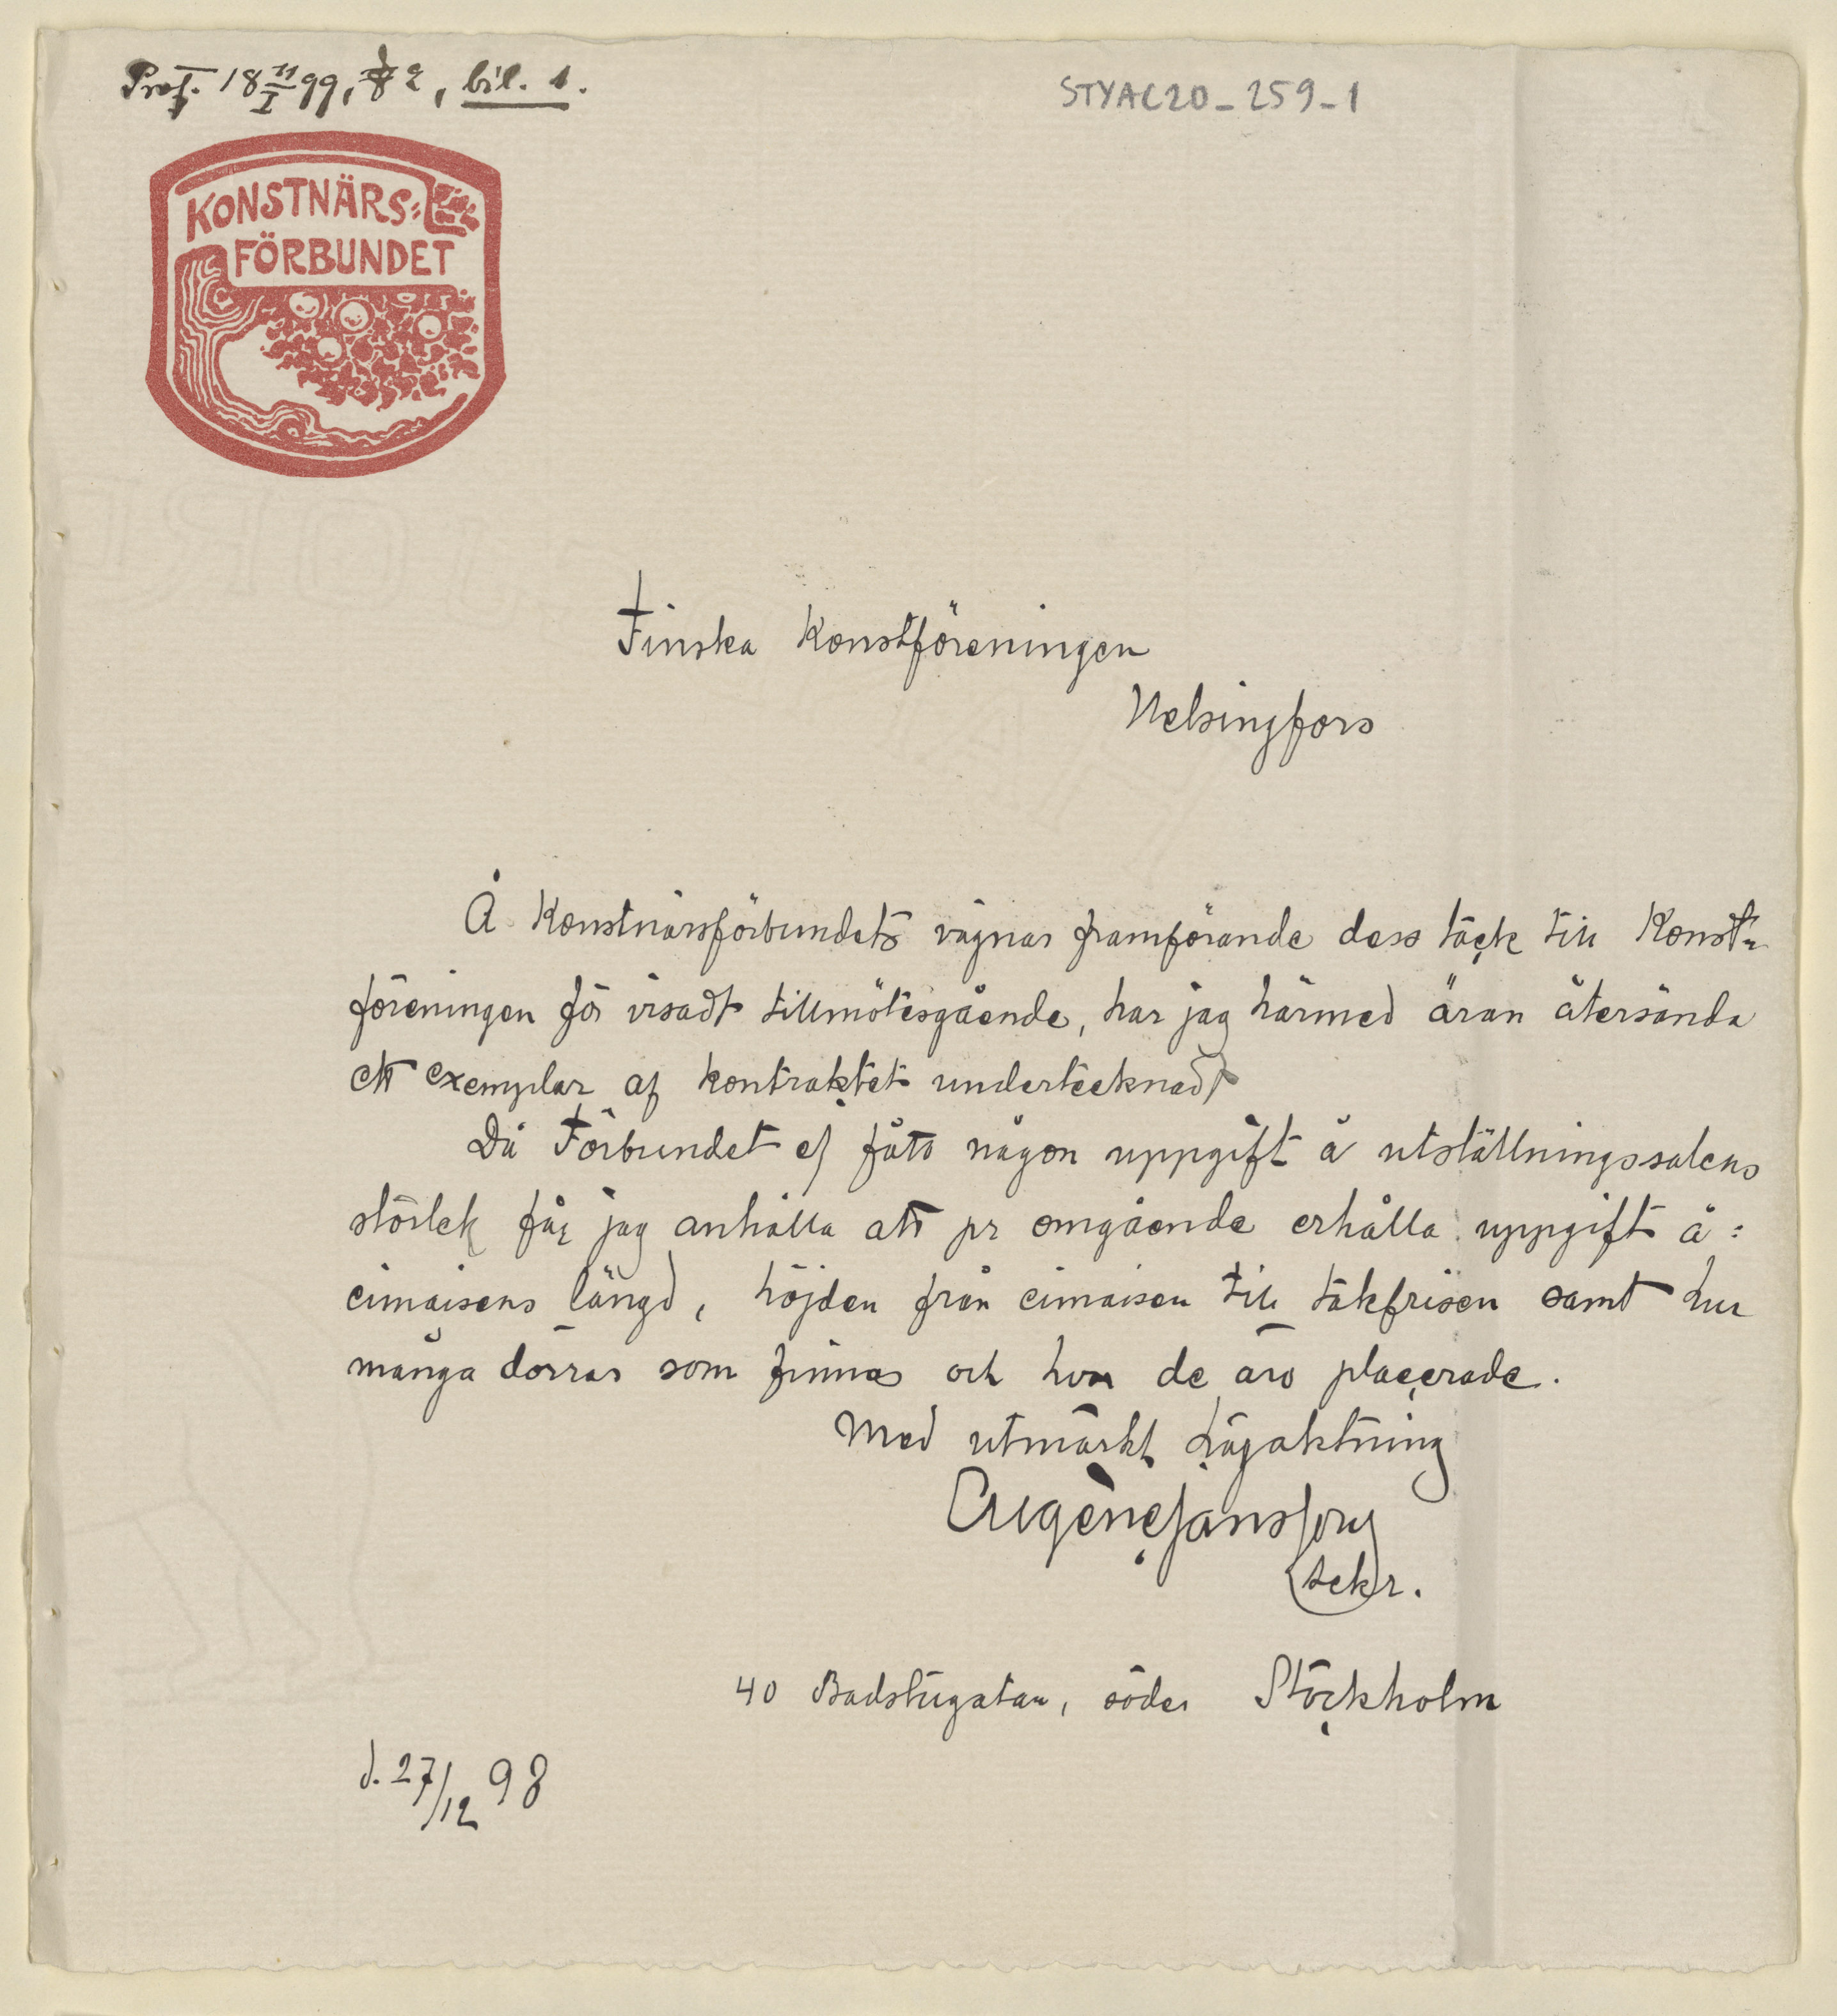 Prot. 18 11/I 99, § 2, bil. 1.
STYAC20_259_1
KONSTNÄRS=
FÖRBUNDET
Finska Konstföreningen
Helsingfors
Å Konstnärsförbundets vägnar framförande dess tack till Konst-
föreningen för visadt tillmötesgående, har jag härmed äran återsända
ett exemplar af kontraktet undertecknadt
Då Förbundet ej fått någon uppgift å utställningssalens
storlek får jag anhålla att pr omgående erhålla uppgift å:
cimaisens längd, höjden från cimaisen till takfrisen samt hur
många dörrar som finnas och hvar de äro placerade.
Med utmärkt högaktning
Eugène Jansson
sekr.
40 Badstugatan, söder Stockholm
d. 27/12 98